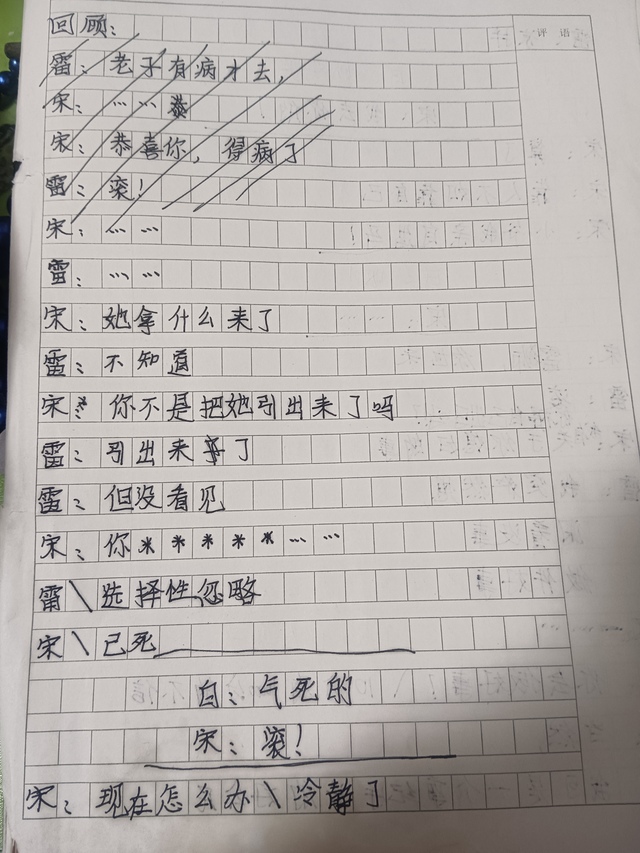 回顾：
评语
雷：老子有病才去，
宋：……恭
宋：恭喜你，得病了
雷：滚！
宋：……
雷：……
宋：她拿什么来了
雷：不知道
宋：你不是把她引出来了吗
雷：引出来了
雷：但没看见
宋：你*****……
雷\选择性忽略
宋\已死
白：气死的
宋：滚！
宋：现在怎么办\冷静了